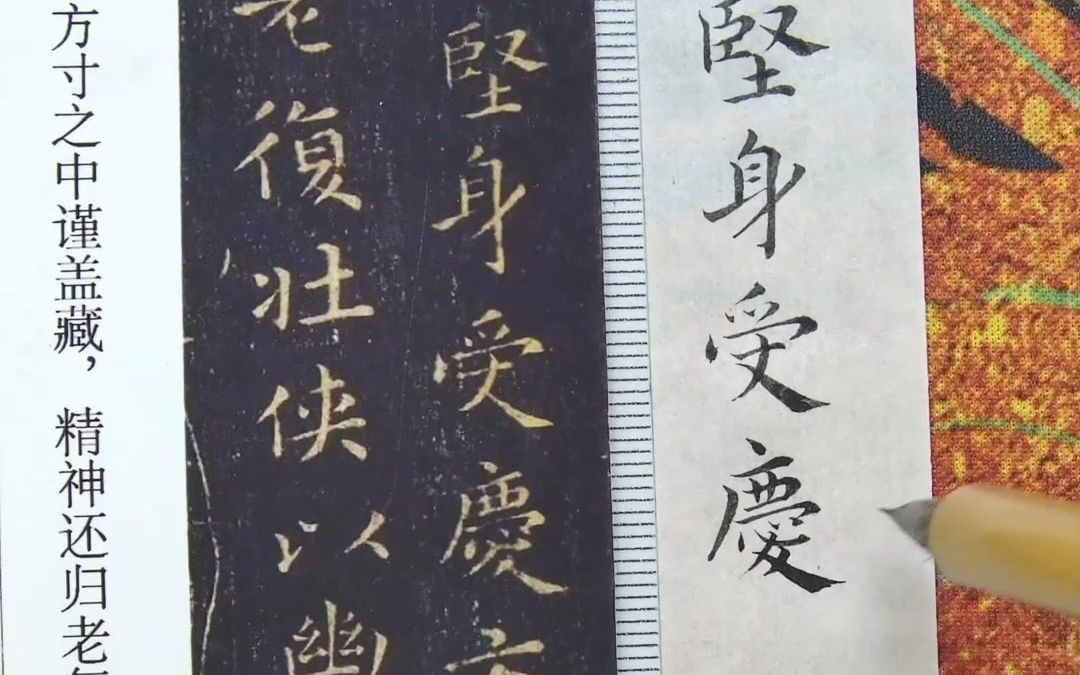 堅身受慶
堅身受慶
老復壯俠以幽
方寸之中谨盖藏，精神还归老